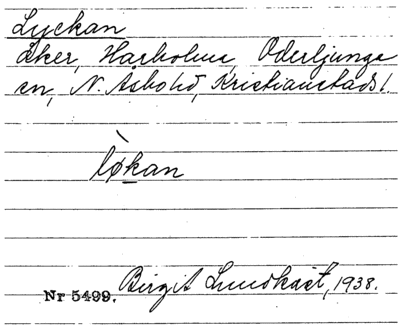 Lyckan
Åker, Harholma, Oderljunga
sn, N. Åsbo hd, Kristianstads l.
lǿkan
Nr 5499. Birgit Lundkvist, 1938.